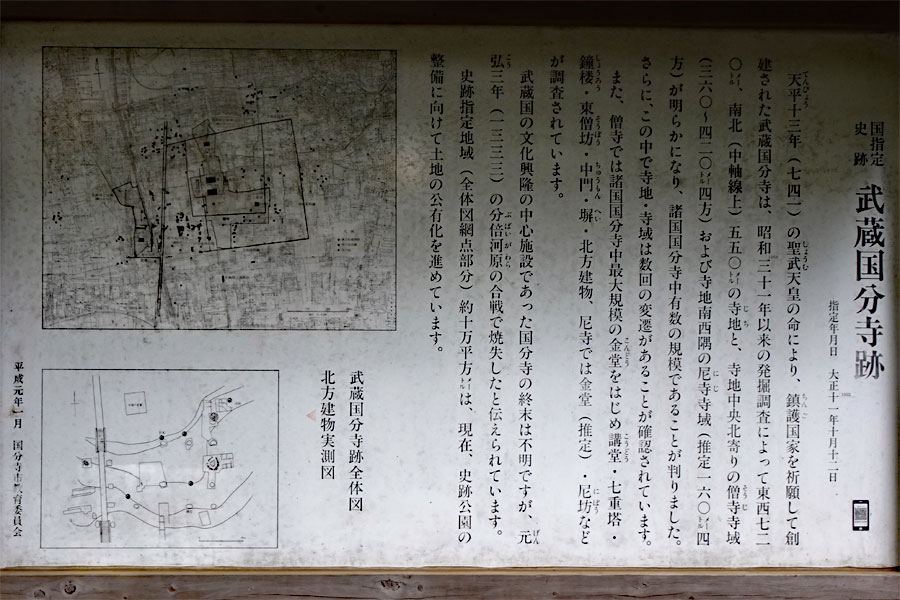 国指定
史跡
武蔵国分寺跡
指定年月日 大正十一年十月十二日
天平十三年(七四一)の聖武天皇の命により、鎮護国家を祈願して創
建された武蔵国分寺は、昭和三十一年以来の発掘調査によって東西七二
〇㍍、南北(中軸線上)五五〇㍍の寺地と、寺地中央北寄りの僧寺寺域
(三六〇〜四二〇㍍四方)および寺地南西隅の尼寺寺域(推定一六〇㍍四
方)が明らかになり、諸国国分寺中有数の規模であることが判りました。
さらに、この中で寺地・寺域は数回の変遷があることが確認されています。
また、僧寺では諸国国分寺中最大規模の金堂をはじめ講堂・七重塔・
鐘楼・東僧坊・中門・塀・北方建物、尼寺では金堂(推定)・尼坊など
が調査されています。
武蔵国の文化興隆の中心施設であった国分寺の終末は不明ですが、元
弘三年(一三三三)の分倍河原の合戦で焼失したと伝えられています。
史跡指定地域(全体図網点部分)約十万平方㍍は、現在、史跡公園の
整備に向けて土地の公有化を進めています。
武蔵国分寺跡全体図
北方建物実測図
平成元年一月 国分寺市教育委員会